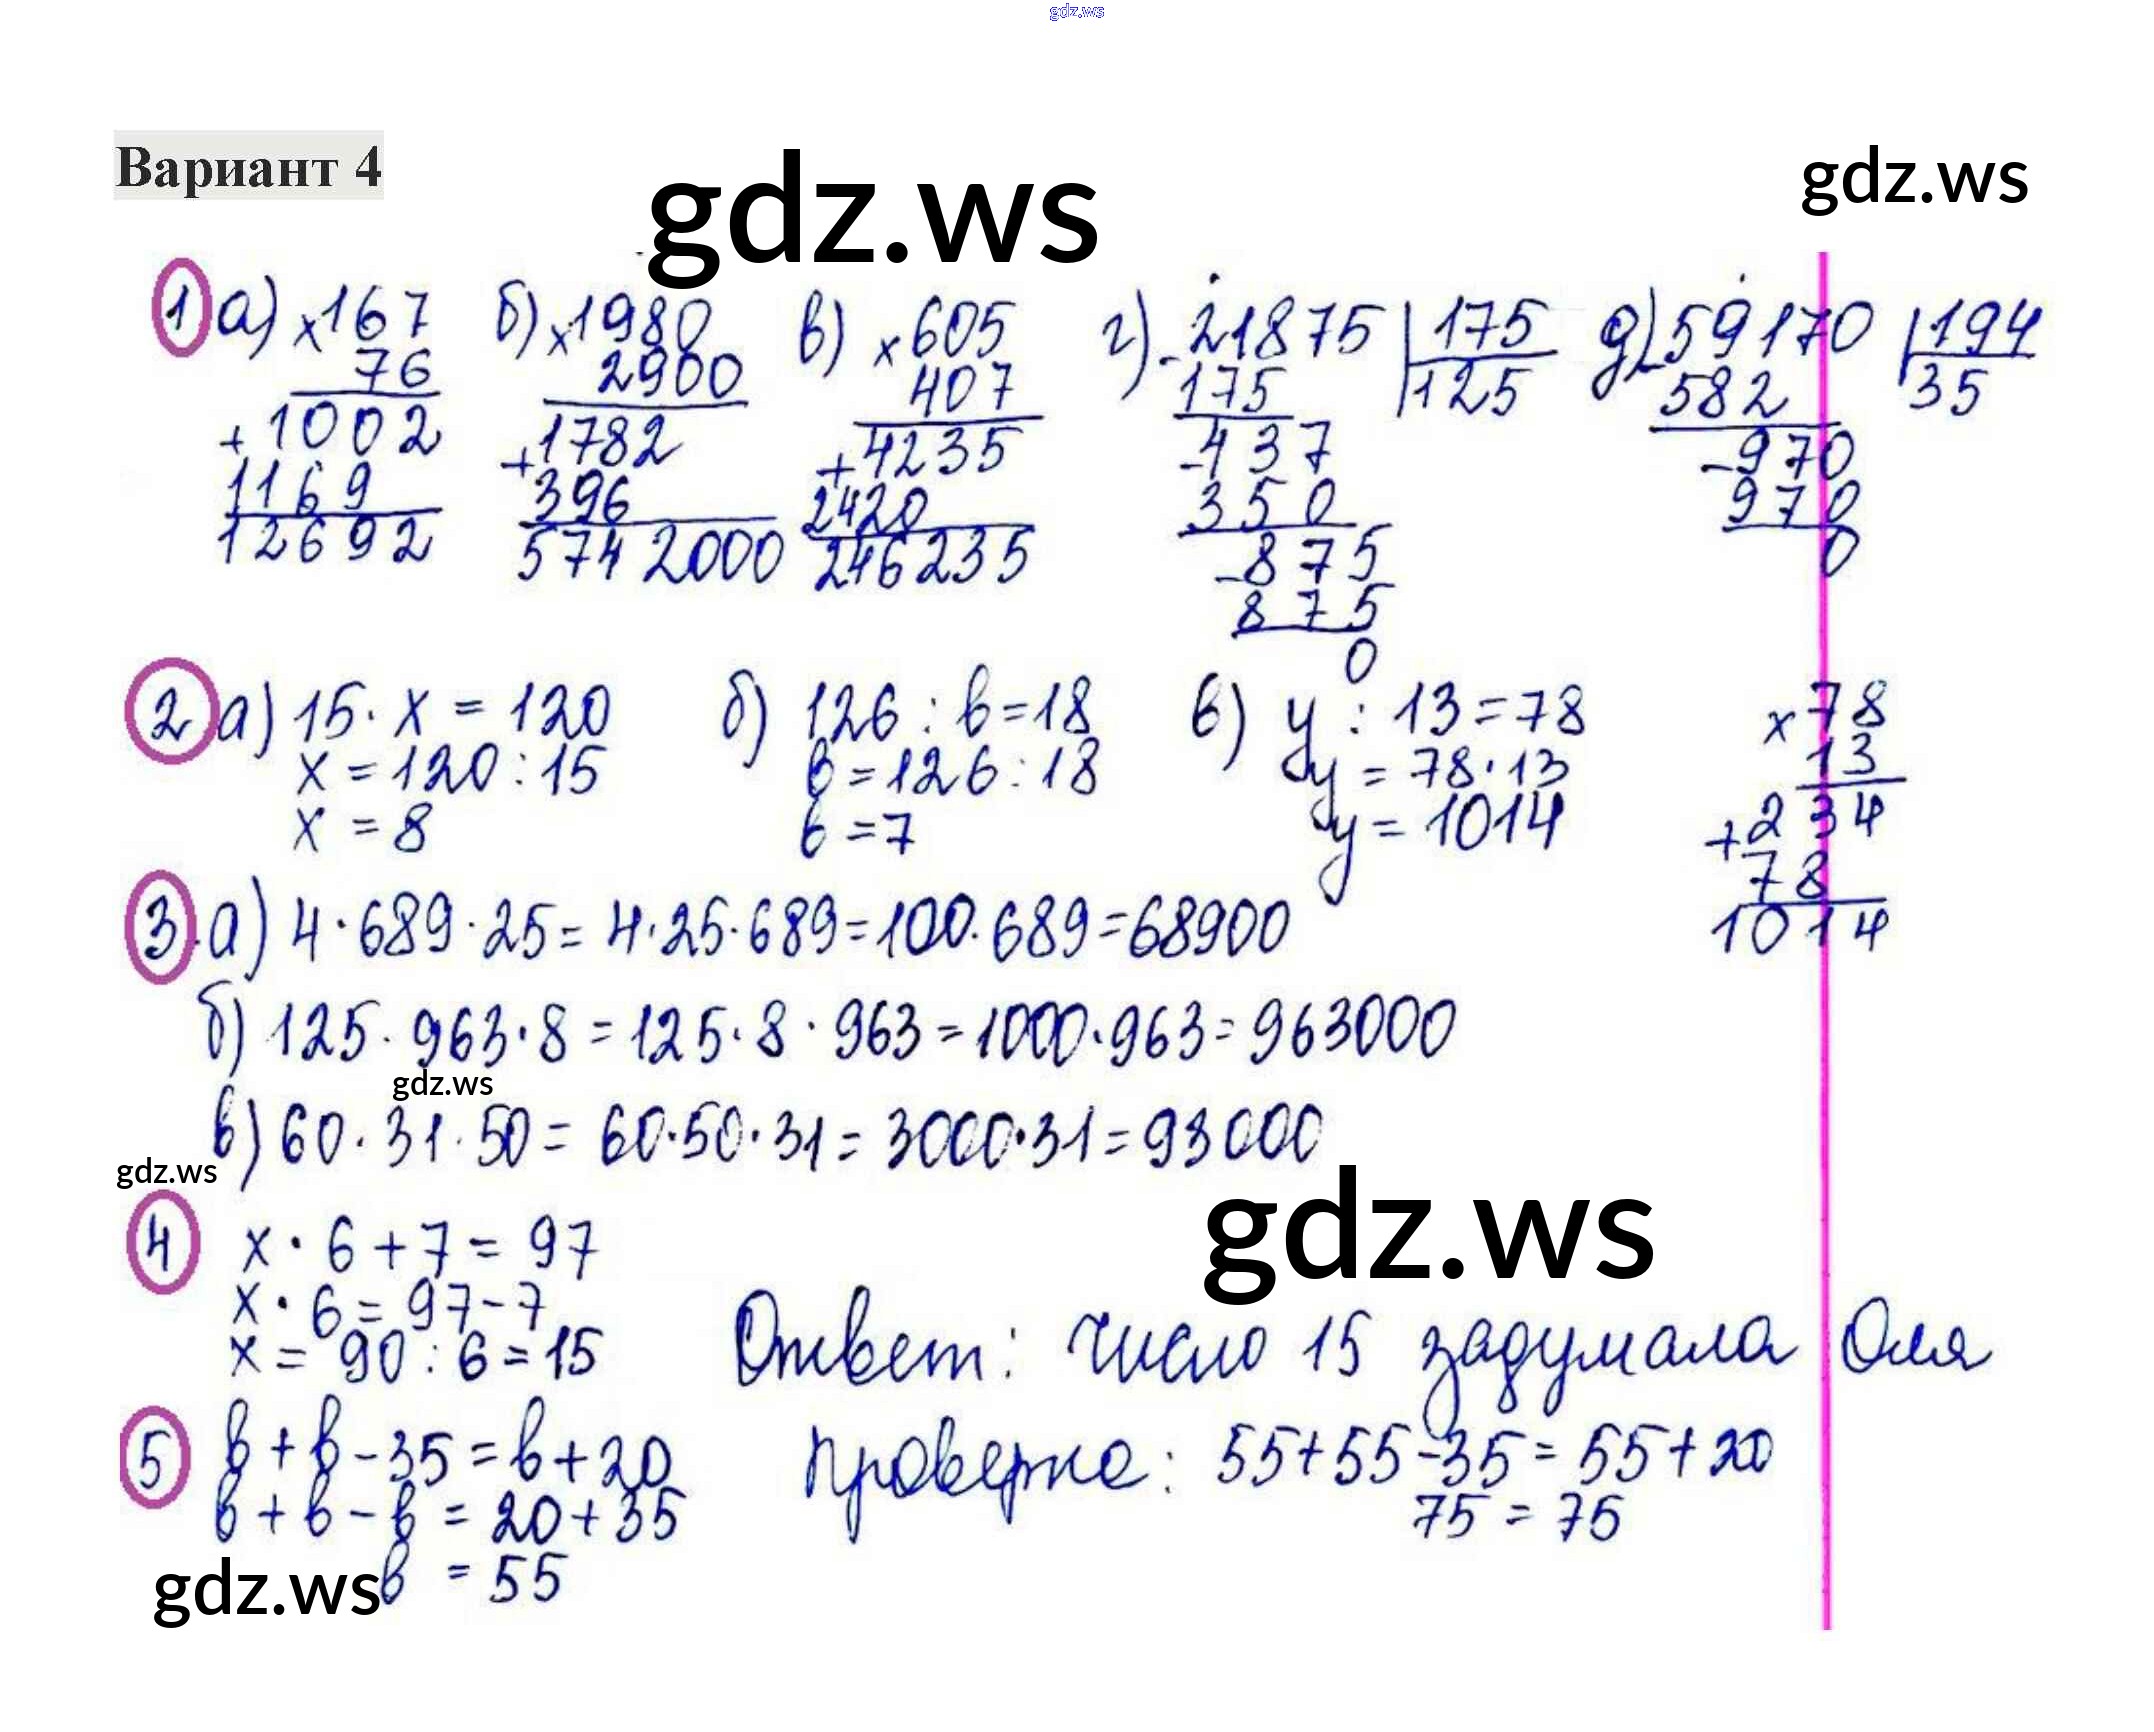 gdz.ws
Вариант 4
gdz.ws
gdz.ws
1 а) × 167 б) × 1980 в) × 605 г) - 21875 | 175 д) - 59170 | 194
76 2900 407 175 125 582 35
+ 1002 + 1782 + 4235 - 437 - 970
1169 396 2420 350 970
12692 5742000 246235 - 875 0
875
0
2 а) 15 · x = 120 б) 126 : b = 18 в) y : 13 = 78 × 78
x = 120 : 15 b = 126 : 18 y = 78 · 13 13
x = 8 b = 7 y = 1014 + 234
78
1014
3. а) 4 · 689 · 25 = 4 · 25 · 689 = 100 · 689 = 68900
б) 125 · 963 · 8 = 125 · 8 · 963 = 1000 · 963 = 963000
gdz.ws
в) 60 · 31 · 50 = 60 · 50 · 31 = 3000 · 31 = 93000
gdz.ws
gdz.ws
4 x · 6 + 7 = 97
x · 6 = 97 - 7
x = 90 : 6 = 15 Ответ: число 15 задумала Оля
5 b + b - 35 = b + 20 Проверка: 55 + 55 - 35 = 55 + 20
b + b - b = 20 + 35 75 = 75
b = 55
gdz.ws